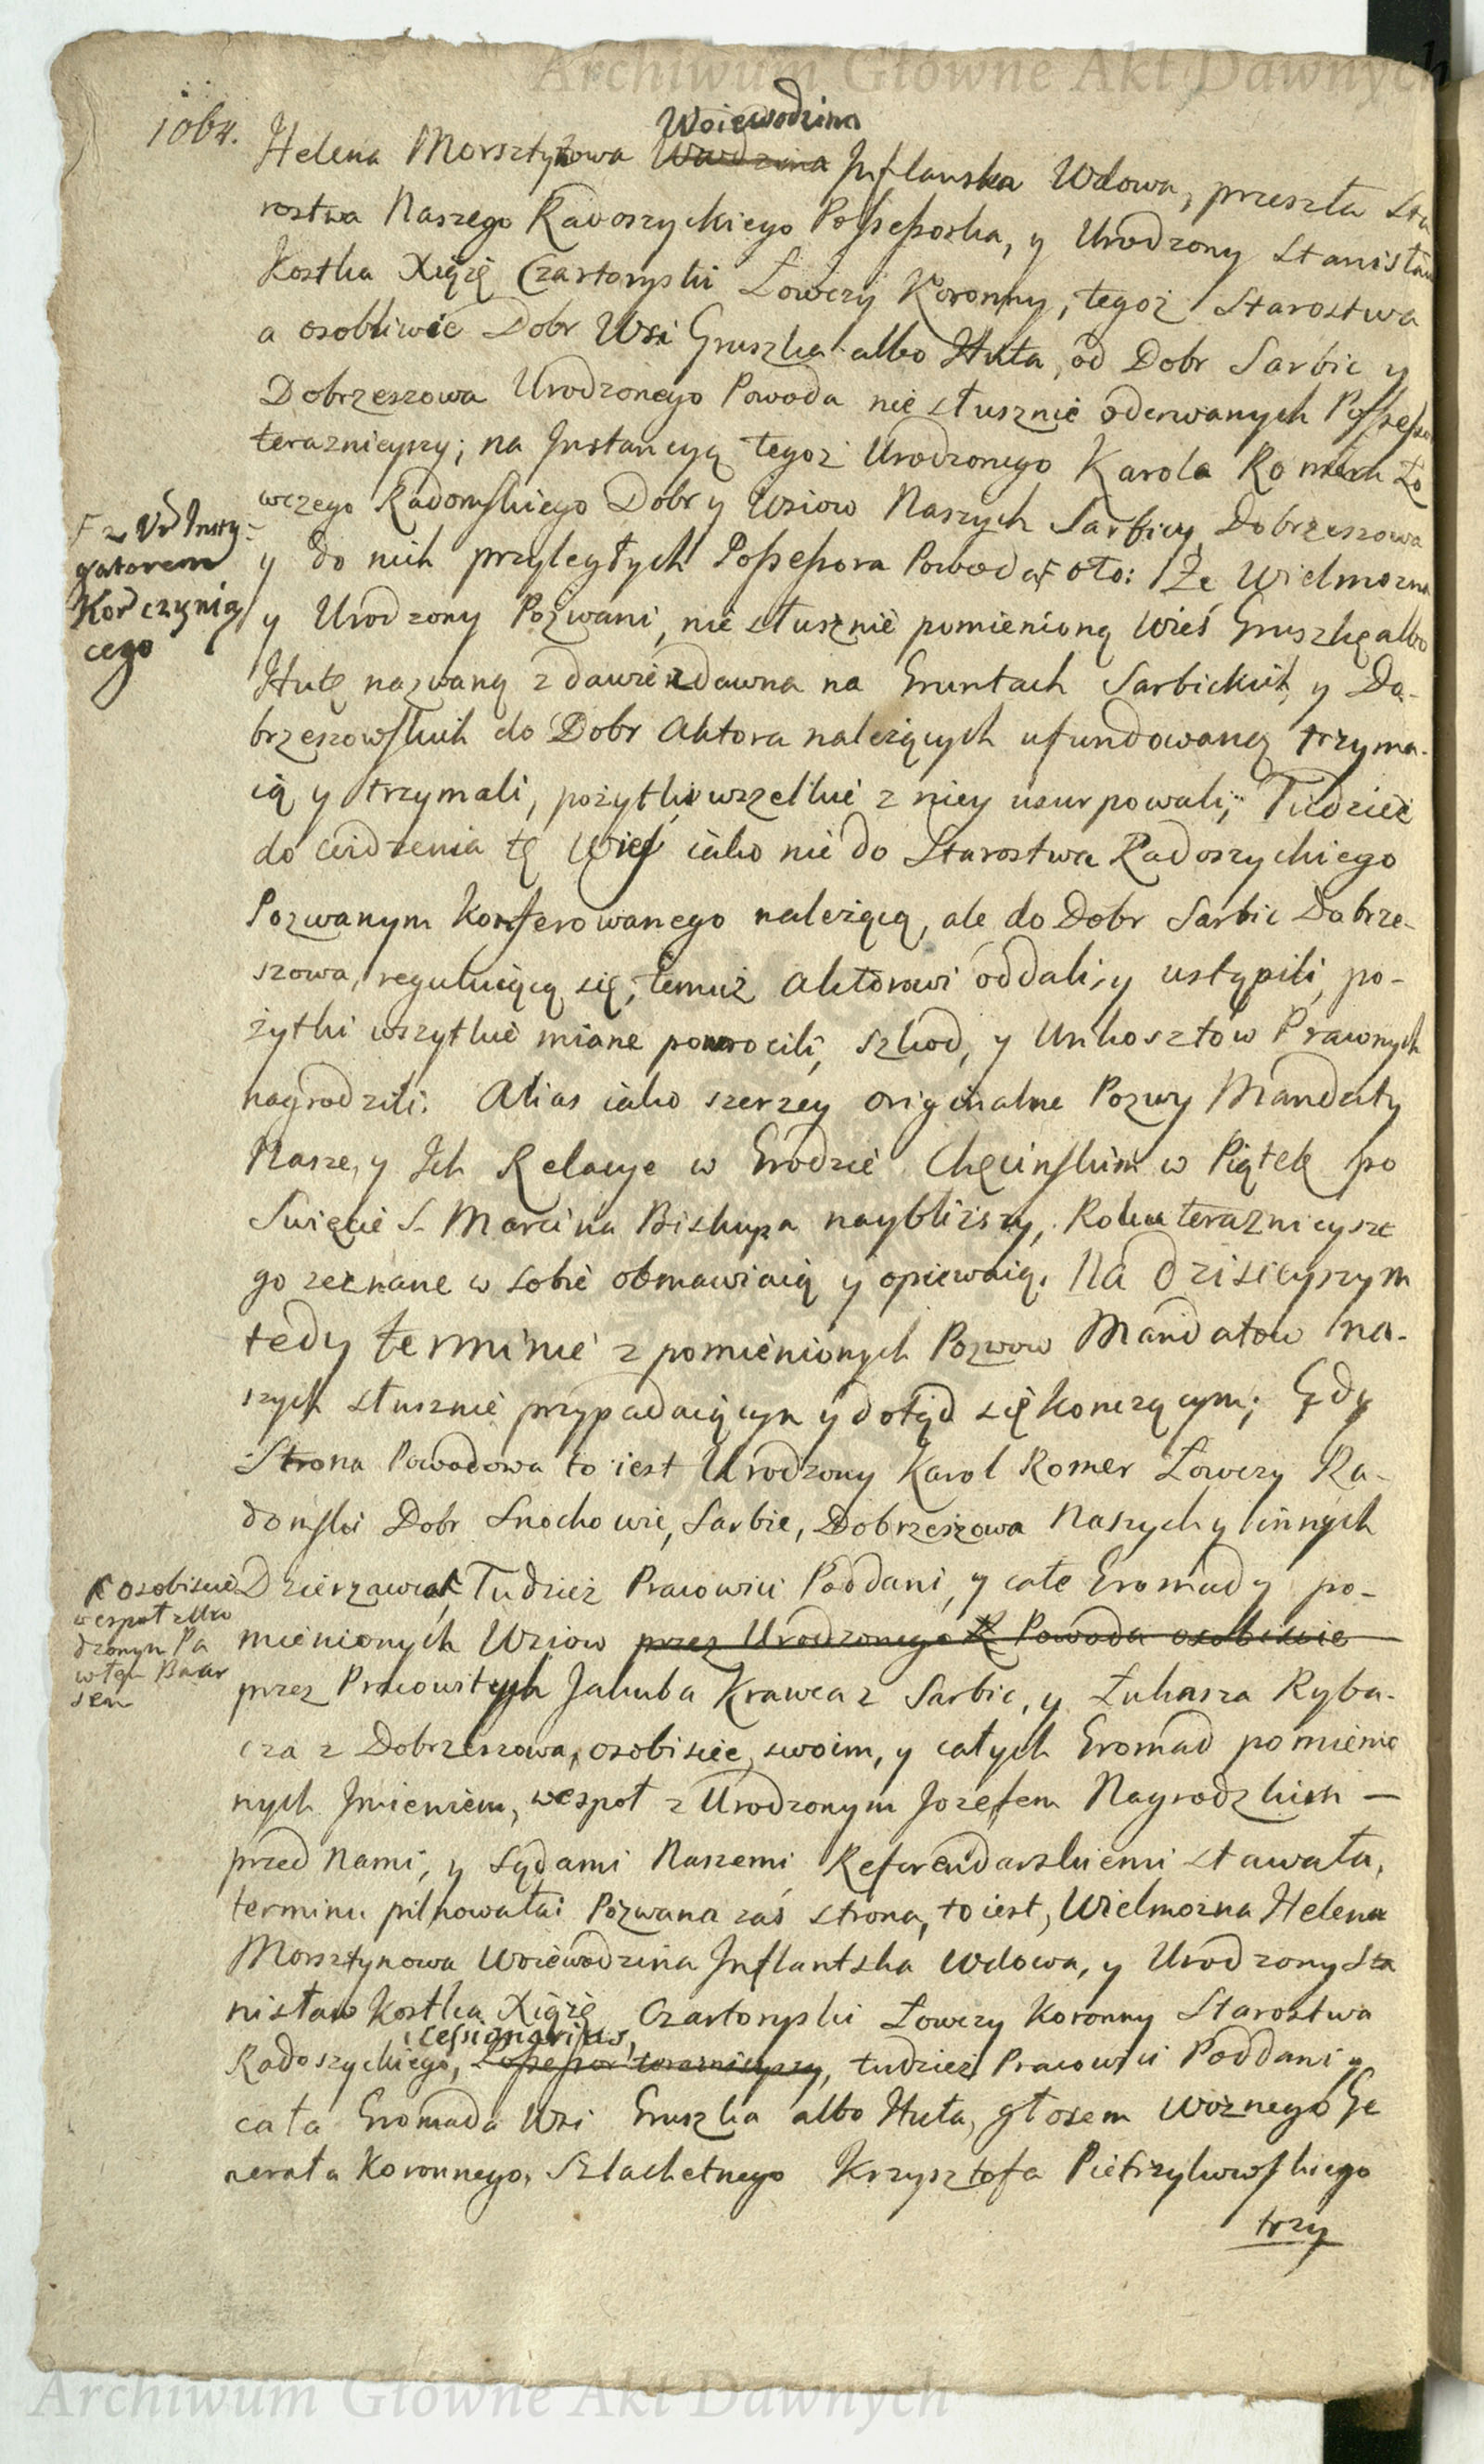 Archiwum Główne Akt Dawnych
1064.
Woiewodzina
Helena Morsztynowa Inflanska Wdowa, przeszła Sta
rostwa Naszego Radoszyckiego Possessorka, y Urodzony Stanisław
Kostka Xiążę Czartoryski Łowczy Koronny, tegoż Starostwa
a osobliwie Dobr Wsi Gruszka albo Huta, od Dobr Sarbic y
Dobrzeszowa Urodzonego Powoda niesłusznie oderwanych Possessor
teraznieyszy; na Instancyą tegoż Urodzonego Karola Romera Ło
wczego Radomskiego Dobr y Wsiow Naszych Sarbicy Dobrzeszowa
F z Ur Insty-
gatorem
Korczynią
cego
y do nich przyległych Possessora Powoda F oto: Że Wielmozna
y Urodzony Pozwani, niesłusznie pomienioną Wieś Gruszkę albo
Hutę nazwaną zdawien dawna na Gruntach Sarbickich y Do-
brzeszowskich do Dobr Aktora należących ufundowaną trzyma-
ią y trzymali, pożytki wszelkie z niey usurpowali; Tudzież
do widzenia tę Wieś iako nie do Starostwa Radoszyckiego
Pozwanym konferowanego należącą, ale do Dobr Sarbic Dobrze-
szowa, reguluiącą się, temuż Aktorowi oddali, y ustąpili, po-
żytki wszytkie miane powrocili, szkod, y Unkosztów Prawnych
nagrodzili. Alias iako szerzey originalne Pozwy Mandaty
Nasze, y Ich Relacye w Grodzie Chęcinskim w Piątek po
Swięcie S. Marcina Biskupa naybliższy, Roku teraznieysze
go zeznane w sobie obmawiaią y opiewaią. Na dzisieyszym
tedy terminie z pomienionych Pozwow Mandatow na-
szych słusznie przypadaiącym y dotąd się konczącym; Gdy
Strona Powodowa to iest Urodzony Karol Romer Łowczy Ra-
domski Dobr Snochowic, Sarbic, Dobrzeszowa Naszych y innych
F osobiscie
wespoł z Uro
dzonym Pa
włem Baar
sem
Dzierzawca F Tudzież Pracowici Poddani, y całe Gromady po-
mienionych Wsiow przez Urodzonego Powoda osobiscie
przez Pracowitych Jakuba Krawca z Sarbic, y Łukasza Ryba-
cza z Dobrzeszowa, osobiscie, swoim, y całych Gromad pomienio
nych Imieniem, wespoł z Urodzonym Jozefem Nagrodzkim —
przed Nami, y Sądami Naszemi Referendarskiemi stawała,
terminu pilnowała: Pozwana zaś strona, to iest, Wielmozna Helena
Morsztynowa Woiewodzina Inflantska Wdowa, y Urodzony Sta
nisław Kostka Xiążę Czartoryski Łowczy Koronny Starostwa
cessionarius,
Radoszyckiego, Possessor teraznieyszy, tudzież Pracowici Poddani y
cała Gromada Wsi Gruszka albo Huta, głosem Woznego Ge
nerała Koronnego, Szlachetnego Krzysztofa Pietrzykowskiego
trzy
Archiwum Główne Akt Dawnych